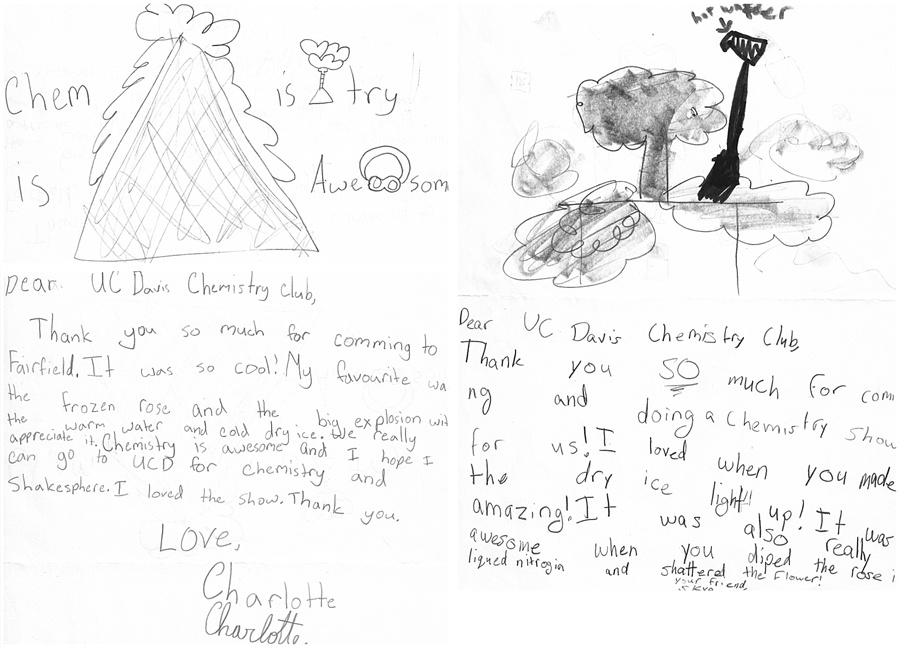 Chem is try!
is Awesom
Dear UC Davis Chemistry Club,
Thank you so much for comming to
Fairfield. It was so cool! My favourite wa
the frozen rose and the big explosion wit
the warm water and cold dry ice. We really
appreciate it. Chemistry is awesome and I hope I
can go to UCD for chemistry and
Shakesphere. I loved the show. Thank you.
LOVE,
Charlotte
Charlotte.
hot
Dear UC Davis Chemistry Club,
Thank you SO much for comi
ng and doing a Chemistry show
for us! I loved when you made
the dry ice light up! It was
amazing! It was also really
awesome when you diped the rose i
liqued nitrogin and shattered the flower!
your friend,